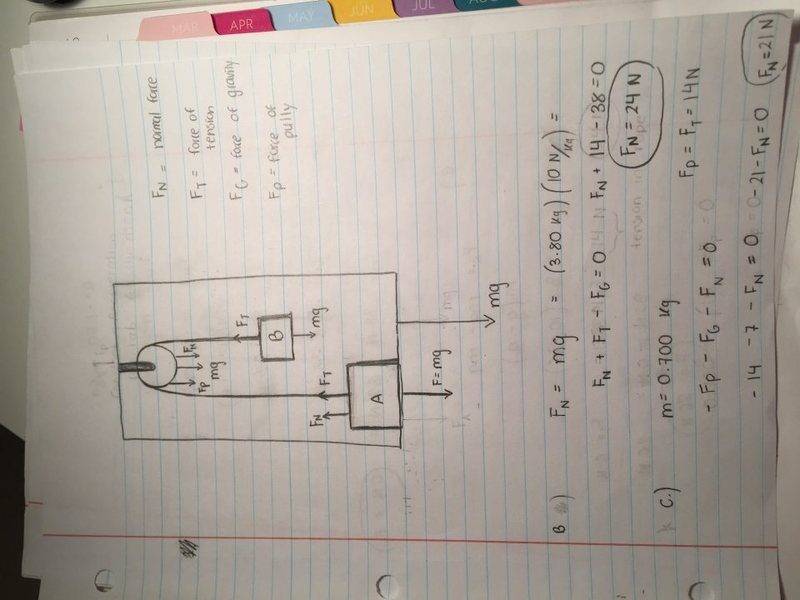 MAR
APR
MAY
JUN
JUL
F_N = normal force
F_T = force of
tension
F_G = force of gravity
F_P = force of
pully
F_P
mg
F_N
F_N
F_T
F_T
A
B
mg
F=mg
mg
B) F_N = mg = (3.80 kg)(10 N/kg) =
F_N + F_T - F_G = 0 F_N + 14 - 38 = 0
F_N = 24 N
C.) m = 0.700 kg
F_P = F_T = 14N
- F_P - F_G - F_N = 0
- 14 - 7 - F_N = 0 -21 - F_N = 0 F_N = 21 N